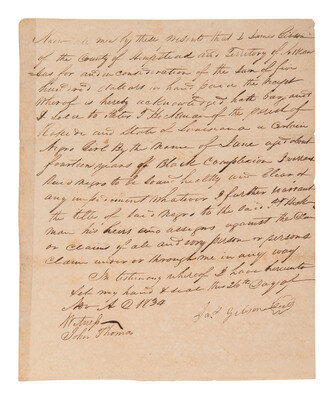 Know all men by these presents that I James Gibson
of the County of Hempstead and Territory of Arkan
sas for and in consideration of the sum of five
hundred dollars in hand paid the receipt
whereof is hereby acknowledged hath bargained
& sold to Peter T. Hickman of the parish of
Rapide and State of Louisiana a Certain
Negro Girl By the Name of Jane aged about
fourteen years of Black Complexion I warrant
said Negro to be sound healthy and clear of
any impediment whatever I further warrant
the title of said Negro to the said Hick
man his heirs and assigns against the claim
or claims of all and every person or persons
claim under or through me in any way
In testimony whereof I have hereunto
set my hand & seal this 26th Day of
Nov A D 1834
Jas Gibson Seal
Witness
John Thomas